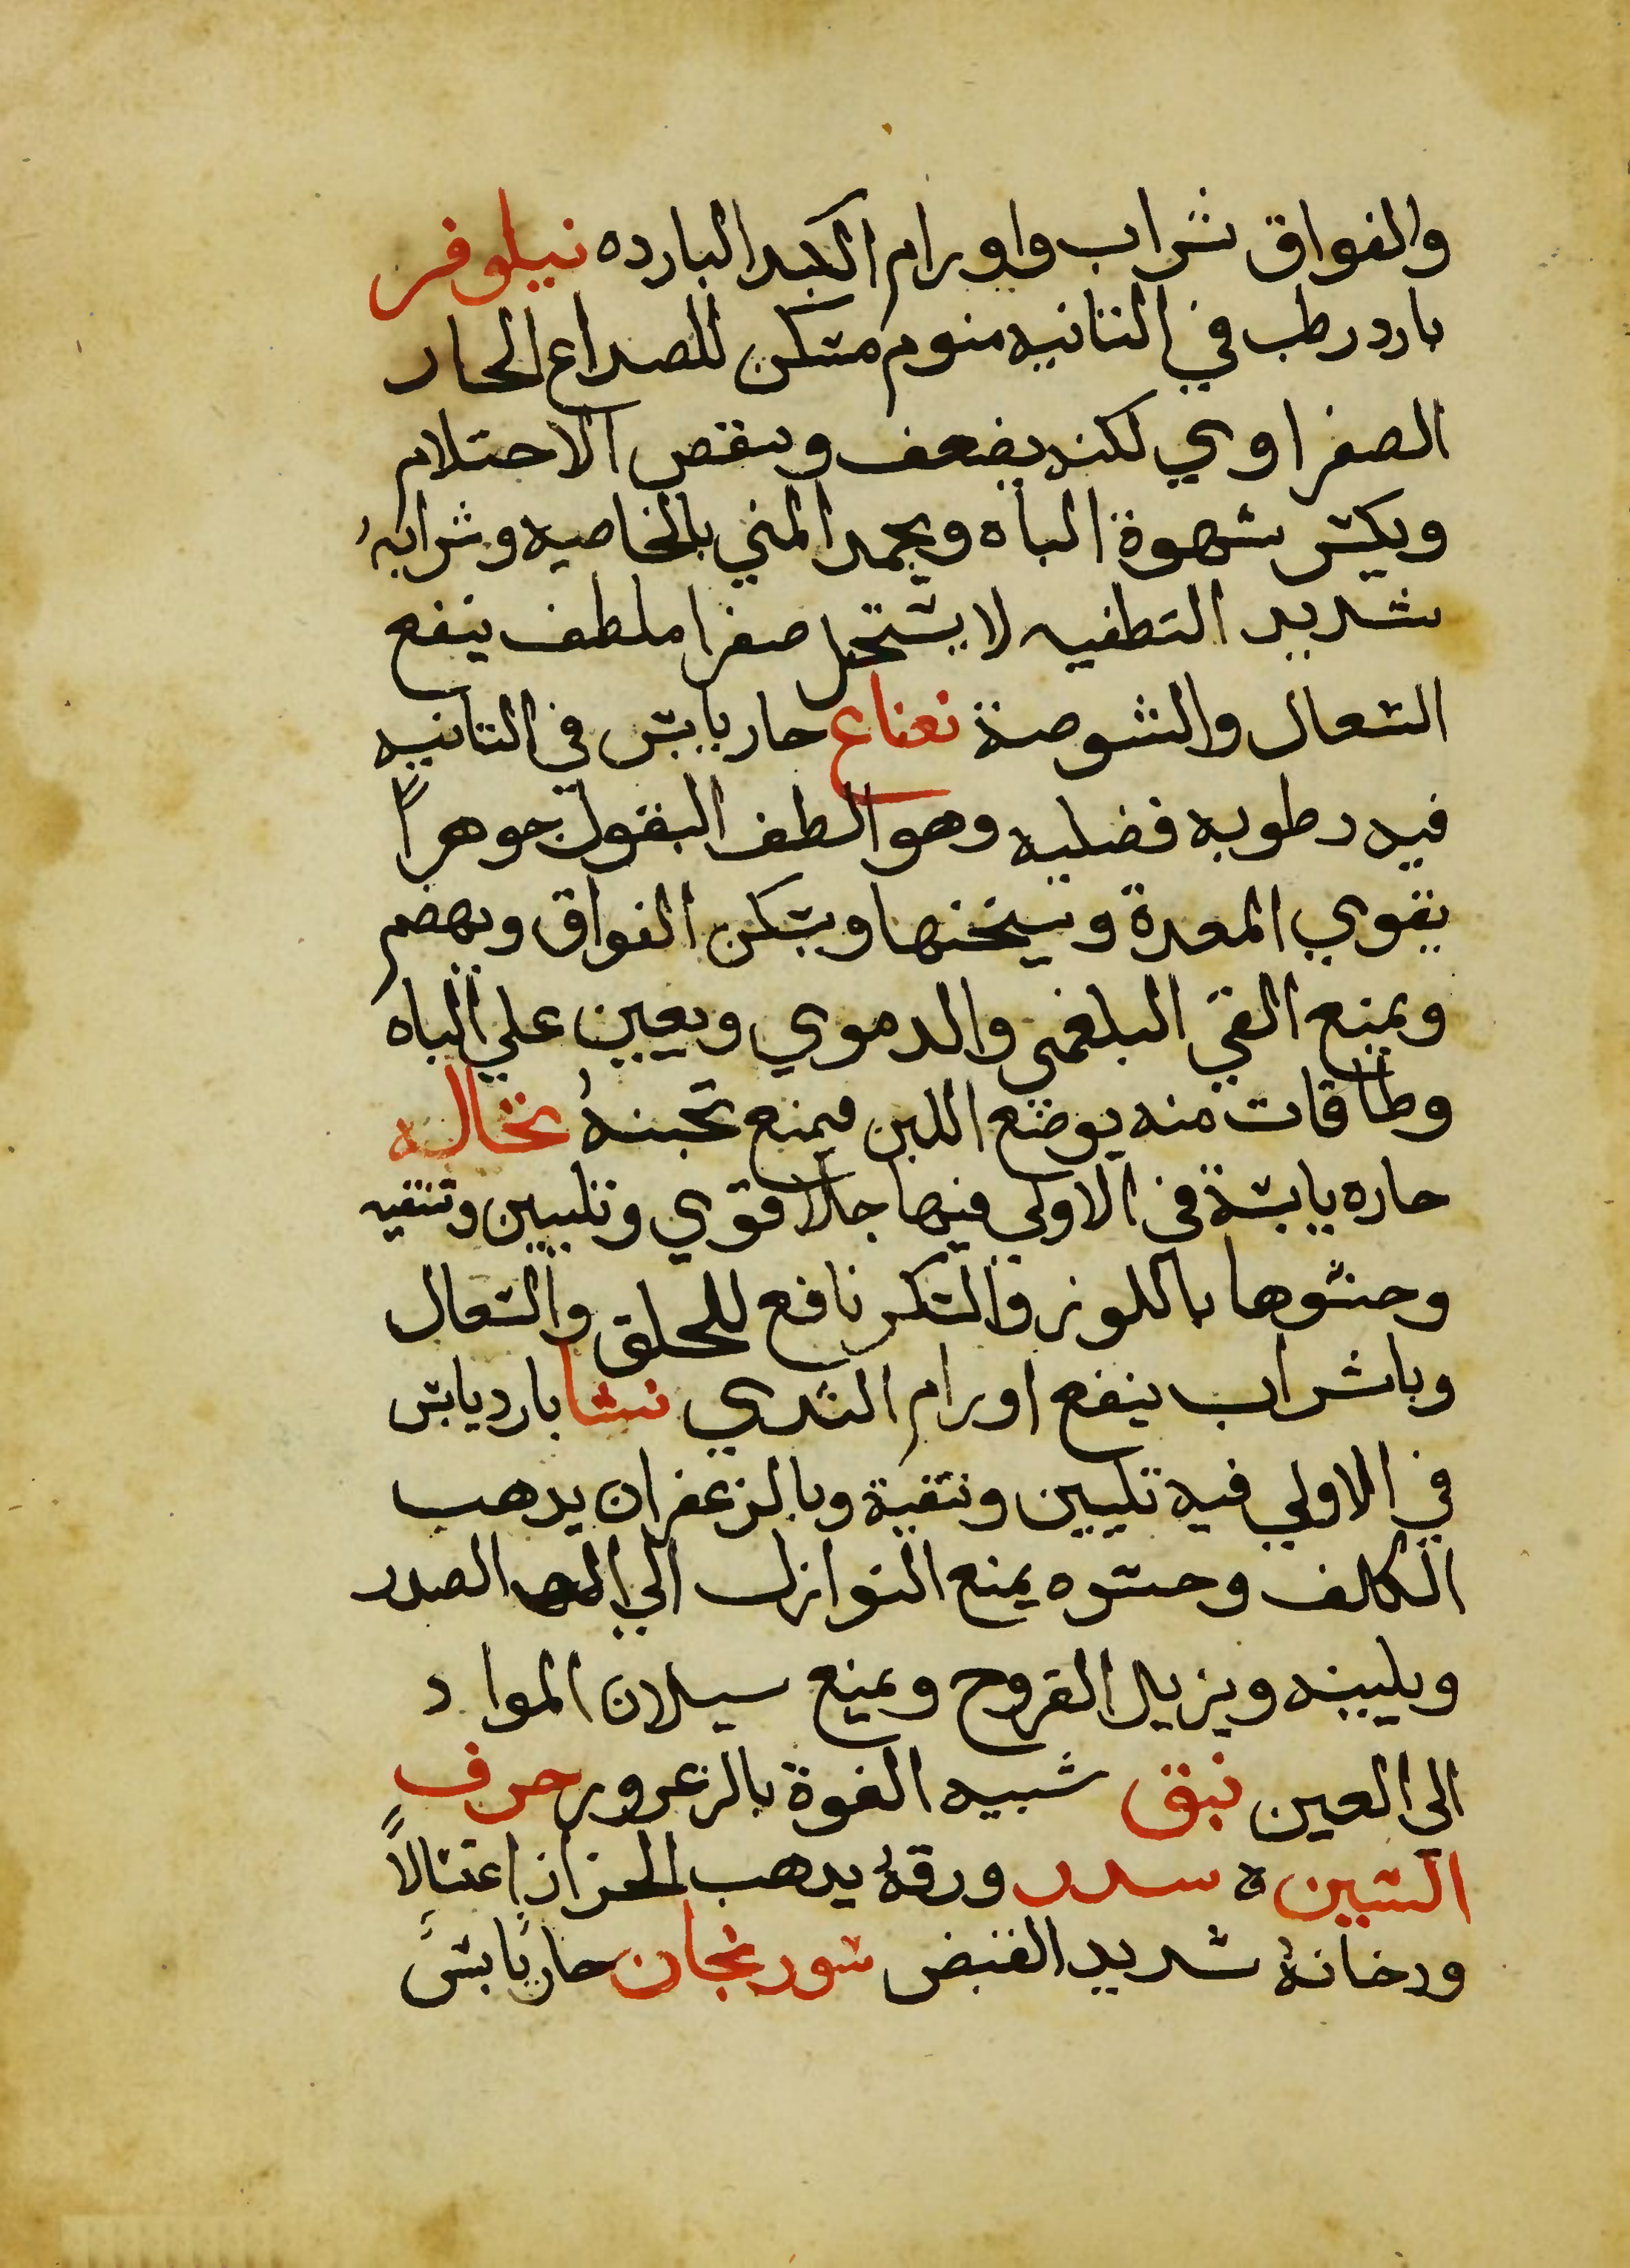 والفواق شراب واورام الكبد البارده نيلوفر
بارد رطب في الثانيه منوم مسكن للصداع الحار
الصفراوي لكنه يضعف وينقص الاحتلام
ويكسر شهوة الباه ويجمد المني بالخاصيه وشرابهُ
شديد التطفيه لا يستحيل صفرا ملطف ينفع
السعال والشوصة نعناع حار يابس في الثانيه
فيه رطوبه فضليه وهو الطف البقول جوهراً
يقوي المعدة ويسخنها ويسكن الفواق ويهضم
ويمنع القي البلغمي والدموي ويعين علي الباه
وطاقات منه يوضع اللبن فيمنع تجبنهُ نخاله
حاره يابسة في الاولي فيها جلا قوي وتليين وتنقيه
وحسوها باللوز والسكر نافع للحلق والسعال
وباشراب ينفع اورام الثدي نشا بارد يابس
في الاولي فيه تليين وتنقية وبالزعفران يدهب
الكلف وحسوه يمنع النوازل الي الصدر
ويلينه ويزيل القروح ويمنع سيلان المواد
الي العين نبق شبيه القوة بالزعرور حرف
السين ه سدر ورقهُ يدهب الحزاز اغتسالاً
ودخانهُ شديد القبض سورنجان حار يابس